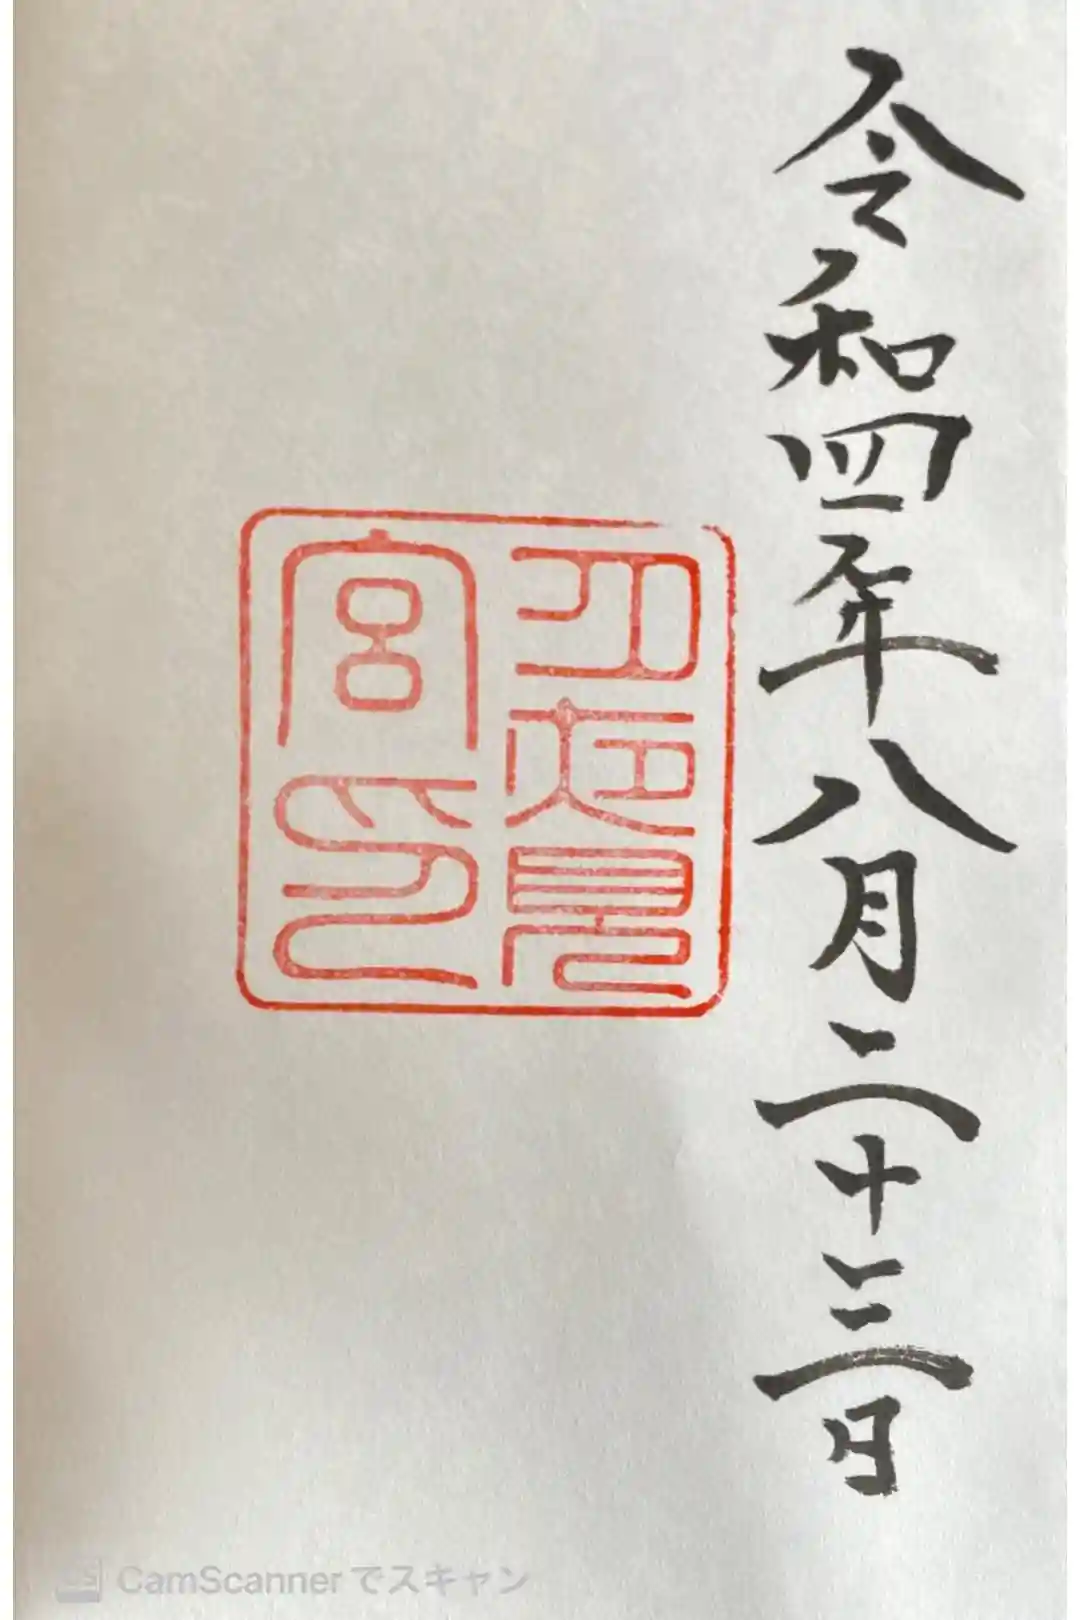 令和四年八月二十三日
月夜見
宮印
CamScannerでスキャン